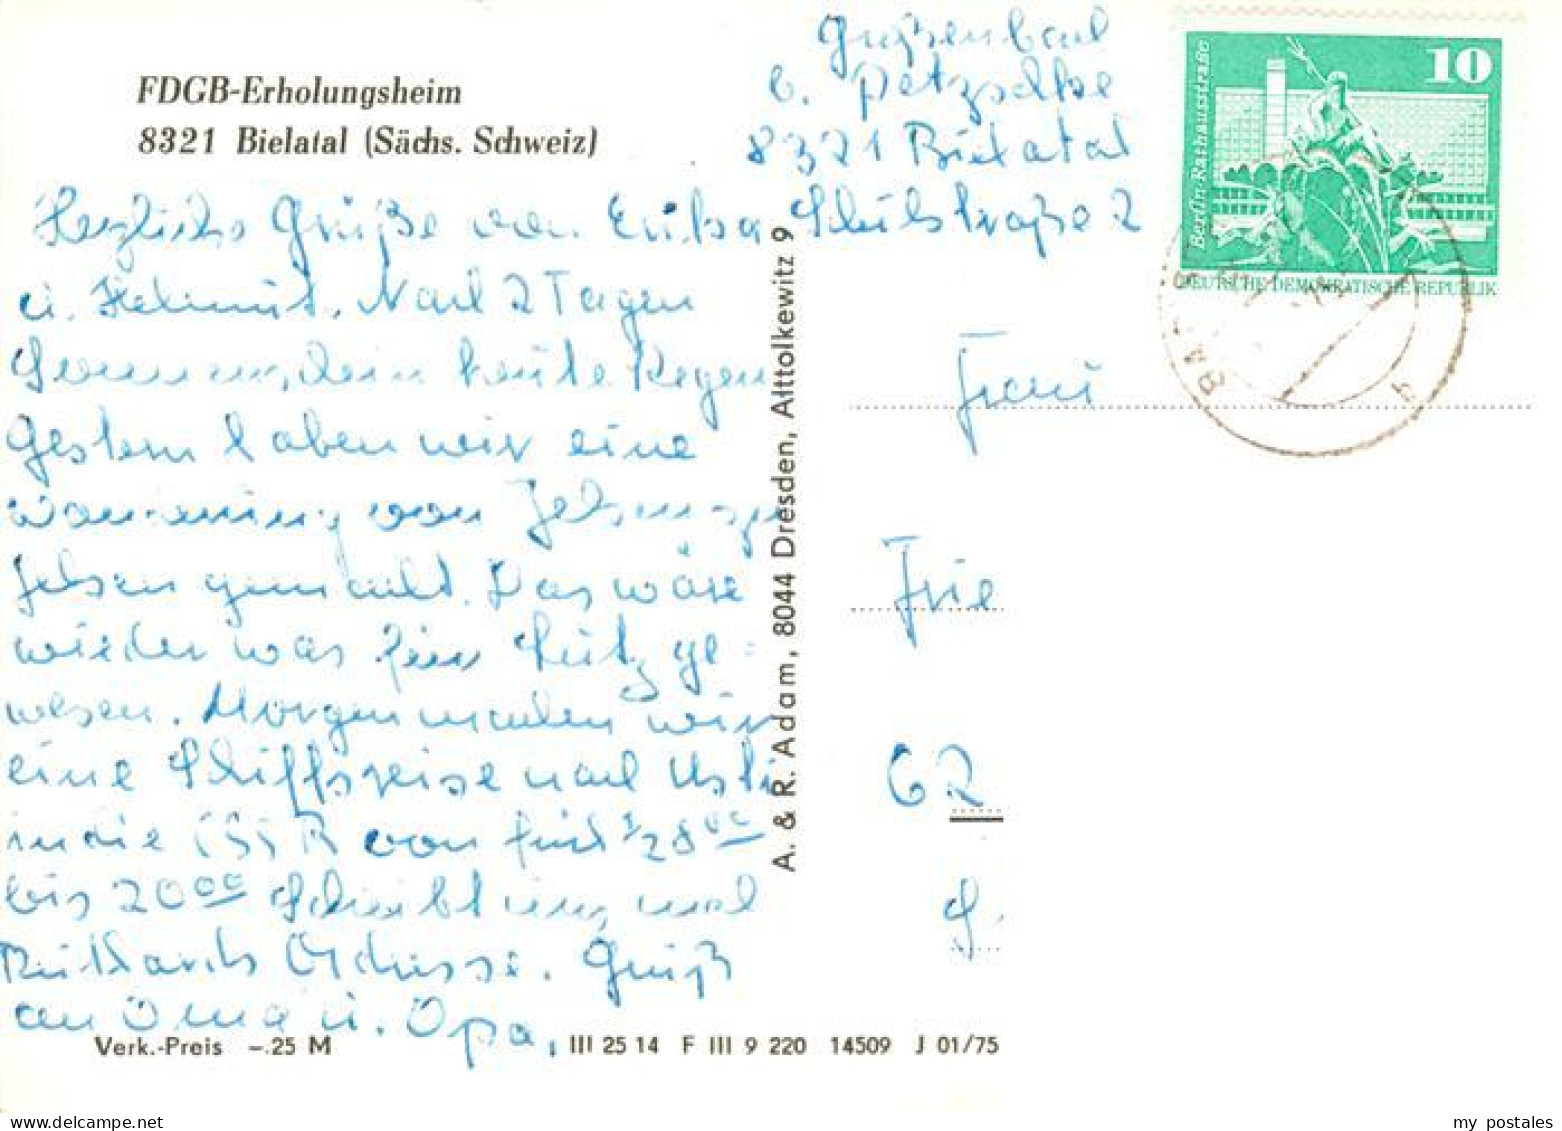 FDGB-Erholungsheim
8321 Bielatal (Sächs. Schweiz)
b. Petzschke
8321 Bielatal
Schulstraße 2
10
Berlin-Rathausstraße
DEUTSCHE DEMOKRATISCHE REPUBLIK
Herzliche Grüße von Erika
u. Helmut. Nach 2 Tagen
heute Regen
Gestern haben wir eine
Wanderung von Felsen zu
Felsen gemacht. Das wäre
wieder was für Lutz ge-
wesen. Morgen machen wir
eine Schiffsreise nach Usti
in die ČSSR von früh 1/2 8 00
bis 20 00 Schreibt uns mal
Gruß
an Oma u. Opa.
A. & R. Adam, 8044 Dresden, Alttolkewitz 9
Frau
Frie
G.
Verk.-Preis -.25 M III 25 14 F III 9 220 14509 J 01/75
my postales